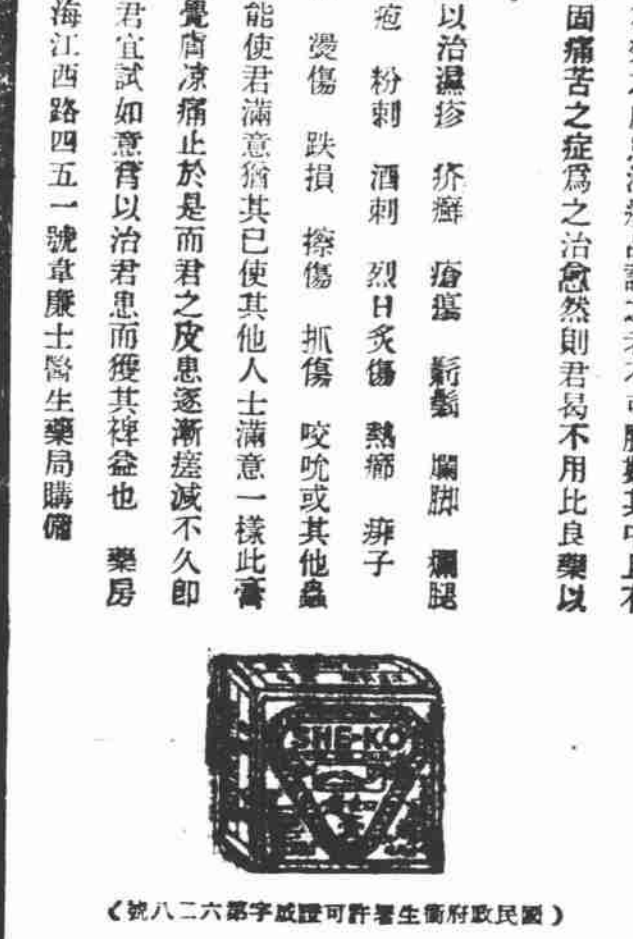 勝數其中且不
固痛苦之症爲之治愈然則君曷不用比良藥以
以治濕疹 疥癬 瘡瘍 爛脚 爛腿
疱 粉刺 酒刺 烈日炙傷 熱癤 痱子
燙傷 跌損 擦傷 抓傷 咬吮或其他蟲
能使君滿意猶其已使其他人士滿意一樣此膏
覺膚凉痛止於是而君之皮患逐漸痊減不久卽
君宜試如意膏以治君患而獲其裨益也 藥房
海江西路四五一號韋廉士醫生藥局購備
SHE-KO
(國民政府衞生署許可證成字第六二八號)